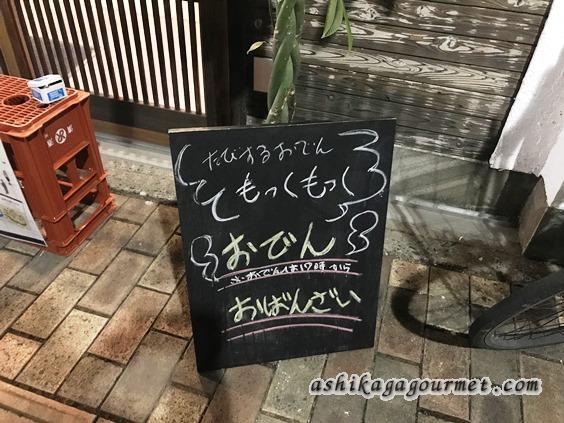 たびするおでん
もっくもっく
おでん
※おでんは17時から
おばんざい
ashikagagourmet.com